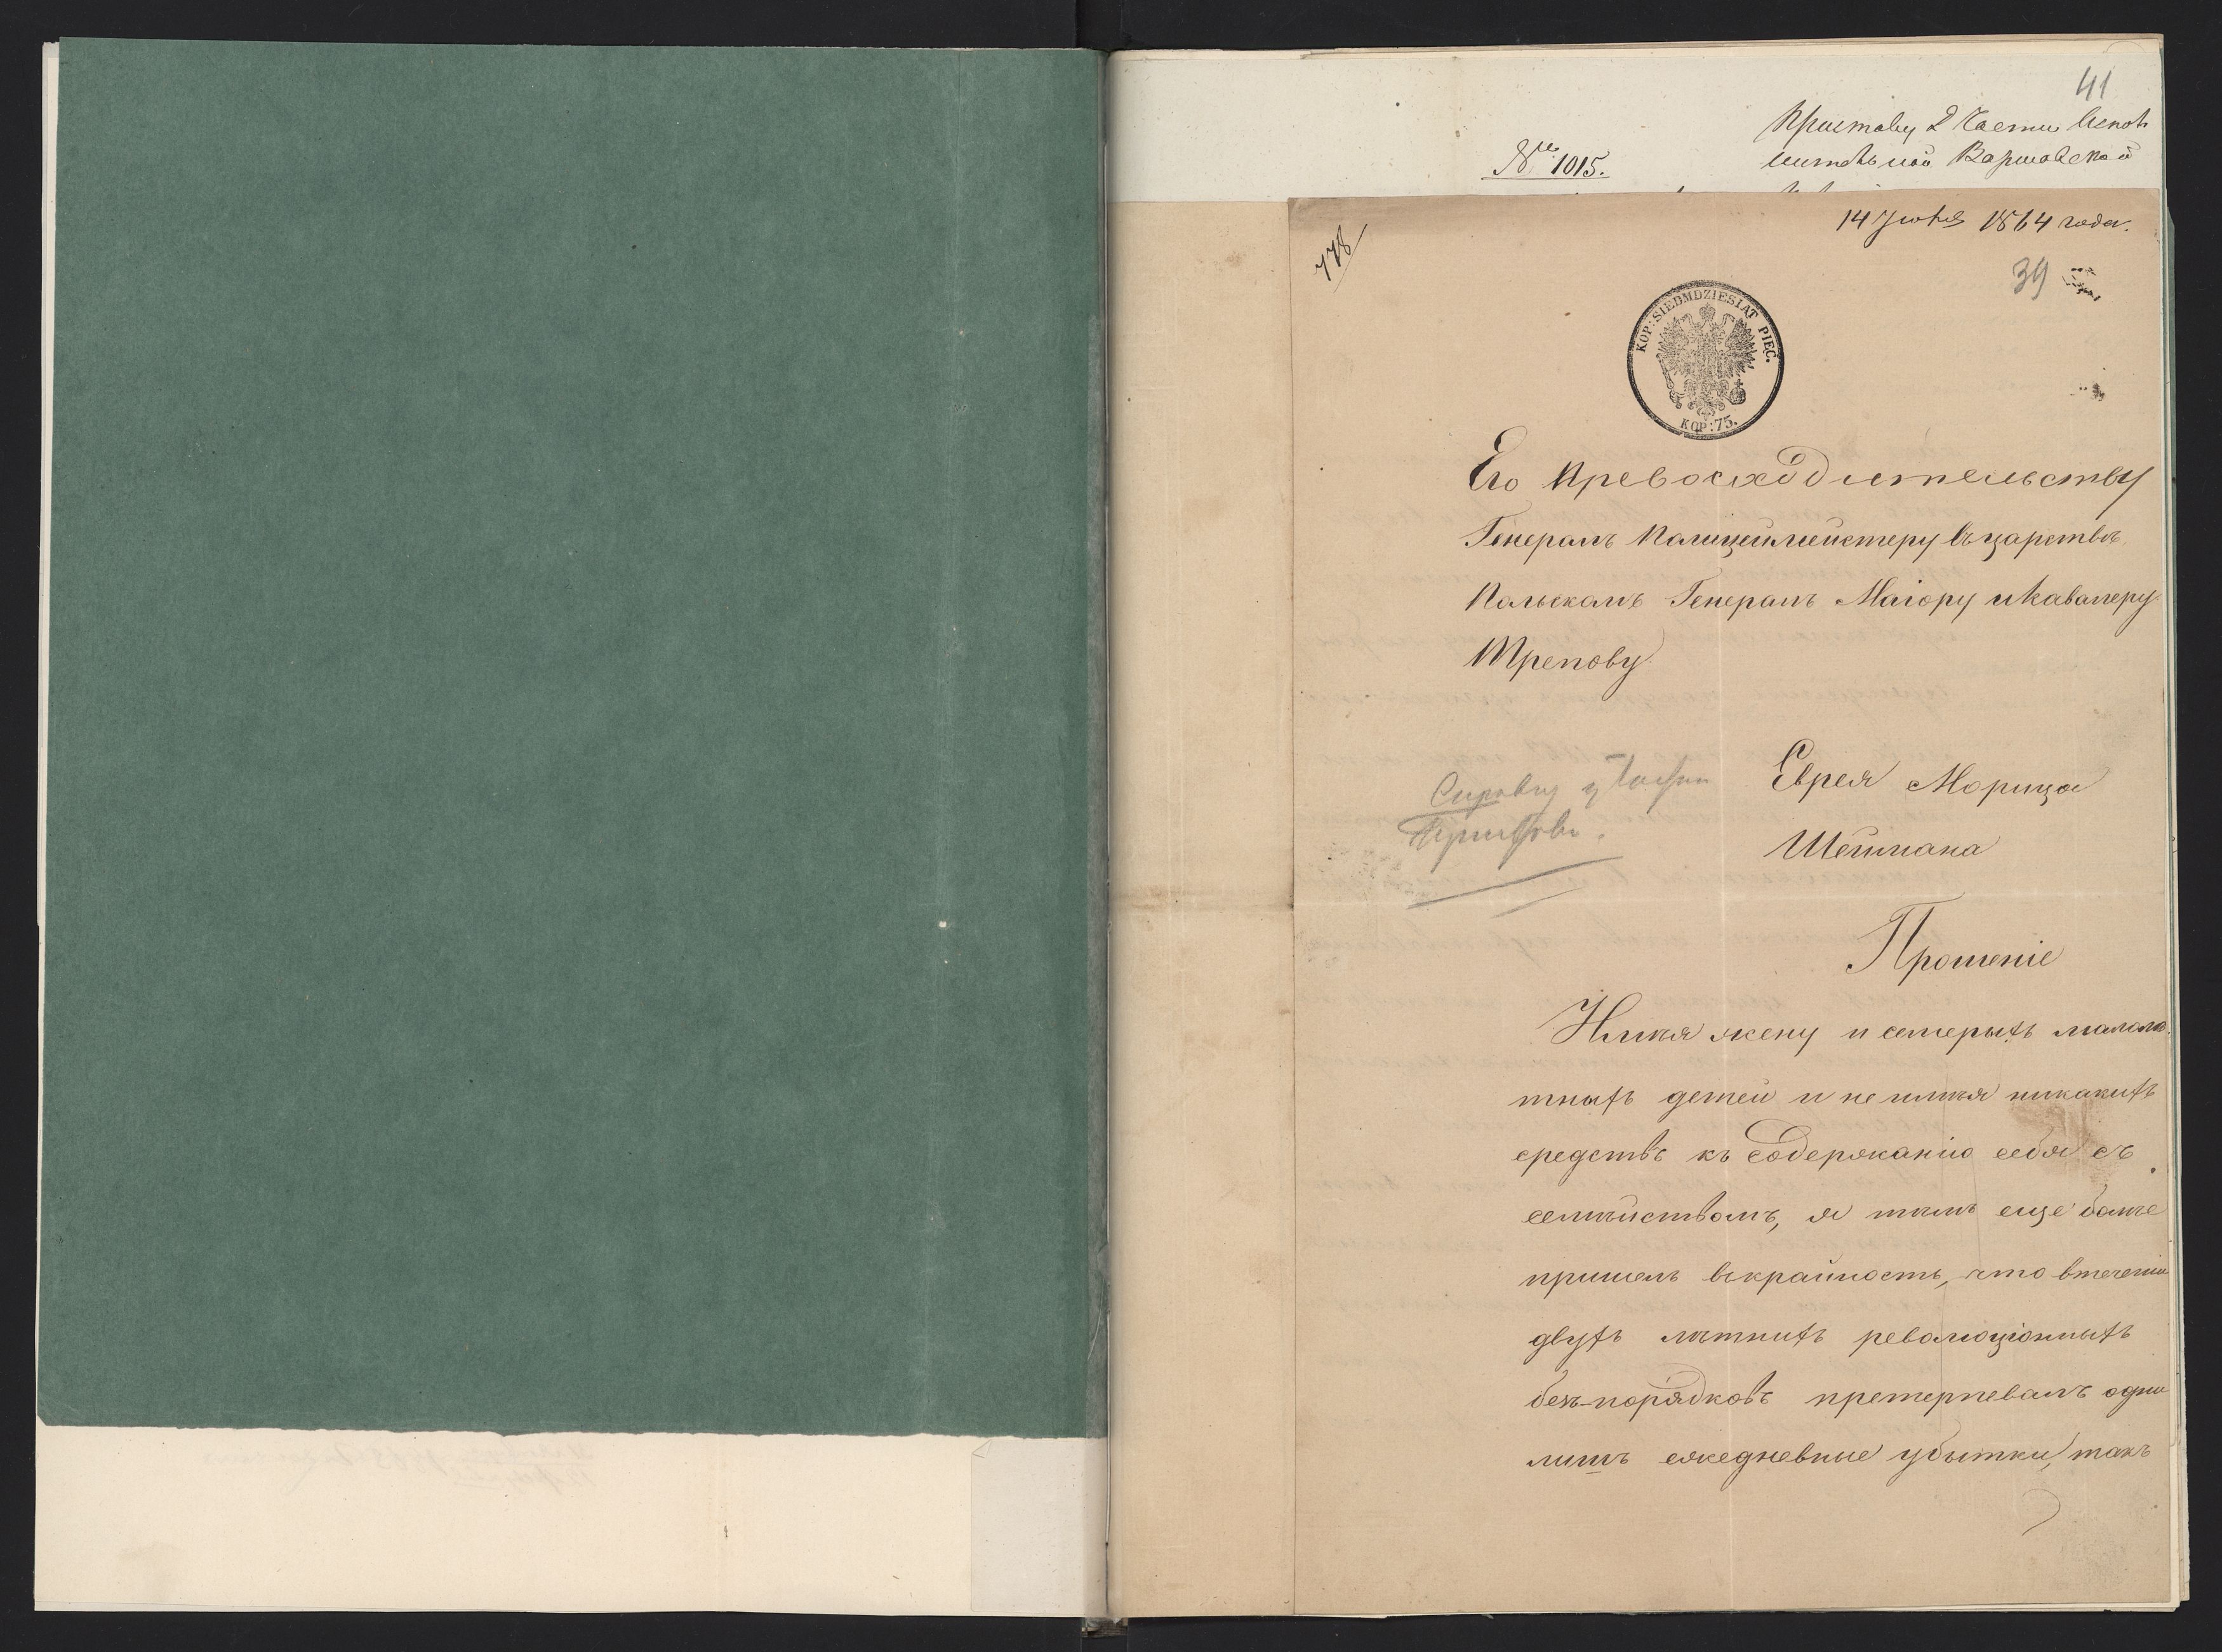 41
Приставу 2 Части Испол
нительной Варшавской
№ 1015.
14 Юля 1864 года.
778
39
KOP: SIEDMDZIESIAT PIĘĆ.
KOP: 75.
Его Превосходительству
Генералъ Полицеймейстеру въ царствѣ
Польскомъ Генералъ Маіору и Кавалеру
Трепову
Еврея Морица
Шеймана
Прошеніе
Имѣя жену и семерыхъ малолѣ
тныхъ детей и не имѣя никакихъ
средствъ къ содержанію себя съ
семѣйствомъ, я тѣмъ еще болѣе
пришелъ вкрайность, что втеченіи
двухъ лѣтнихъ революціонныхъ
безъ-порядковъ претерпевалъ одни
лишъ ежедневные убытки, такъ